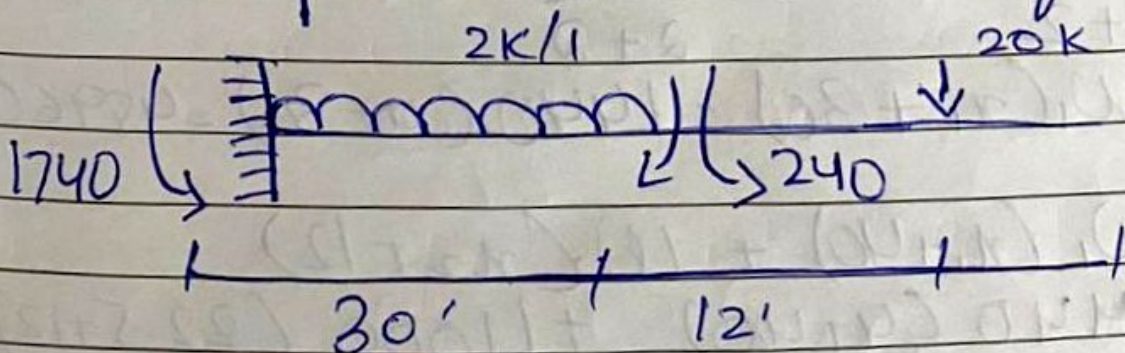 2K/1 20K
1740 240
30' 12'